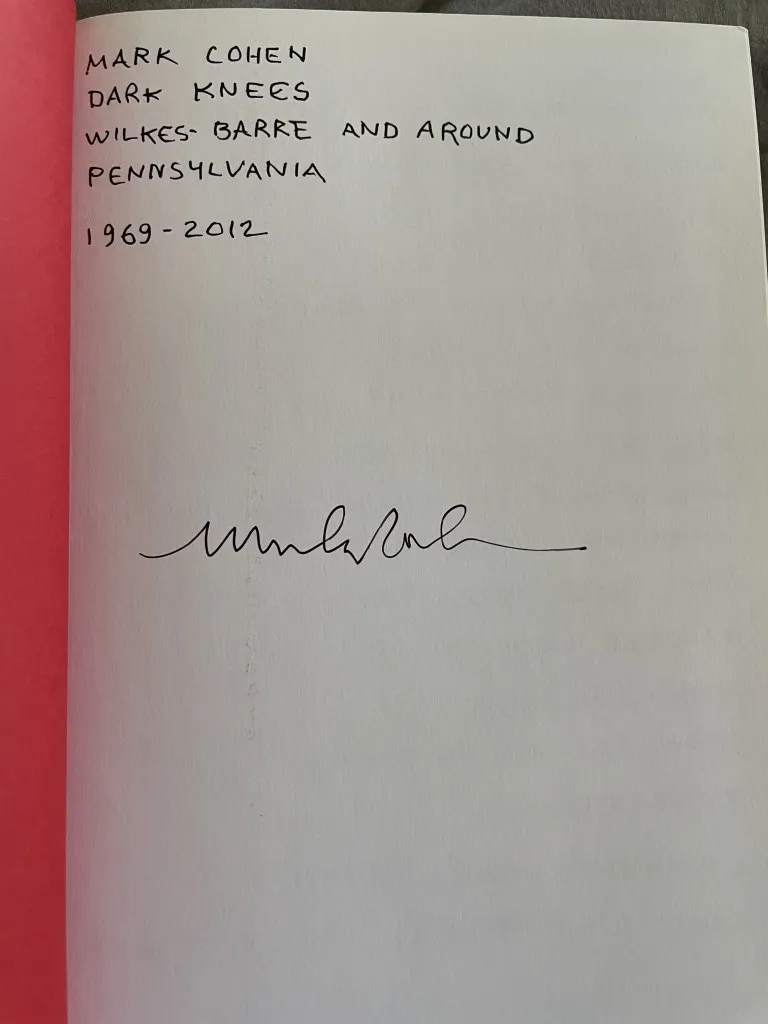 MARK COHEN
DARK KNEES
WILKES-BARRE AND AROUND
PENNSYLVANIA
1969-2012
Mark Cohen